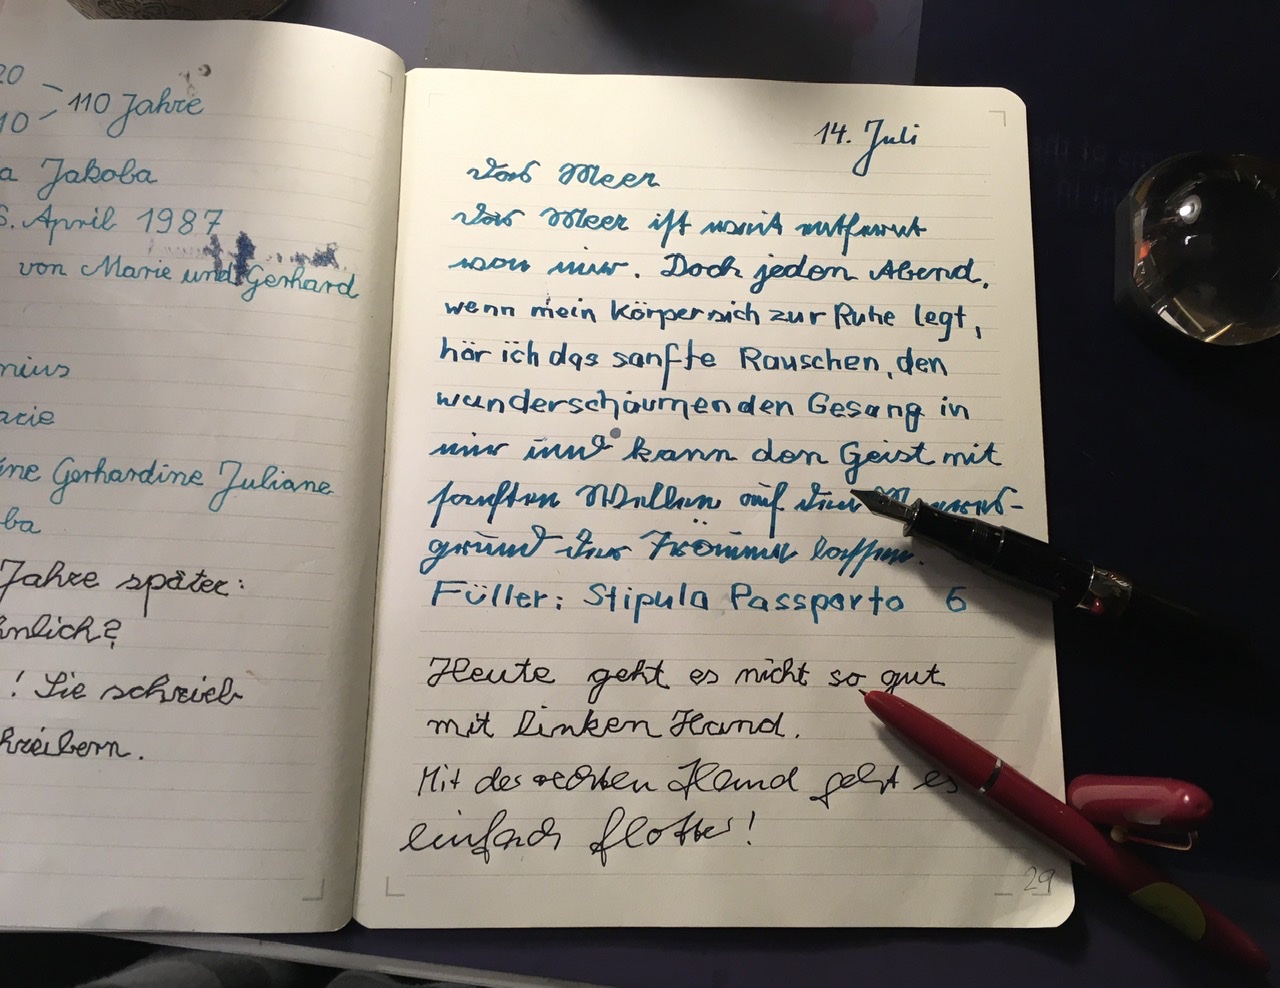 20
110 Jahre
10
a Jakoba
6. April 1987
von Marie und Gerhard
nius
arie
ine Gerhardine Juliane
ba
Jahre später:
hnlich?
! Sie schrieb
hreibern.
14. Juli
Das Meer
Das Meer ist weit entfernt
von mir. Doch jeden Abend,
wenn mein Körper sich zur Ruhe legt,
hör ich das sanfte Rauschen, den
wunderschäumenden Gesang in
mir und kann den Geist mit
sanften Wellen auf den Meeres-
grund der Träume lassen.
Füller: Stipula Passporto 6
Heute geht es nicht so gut
mit linken Hand.
Mit der rechten Hand geht es
einfach flotter!
29